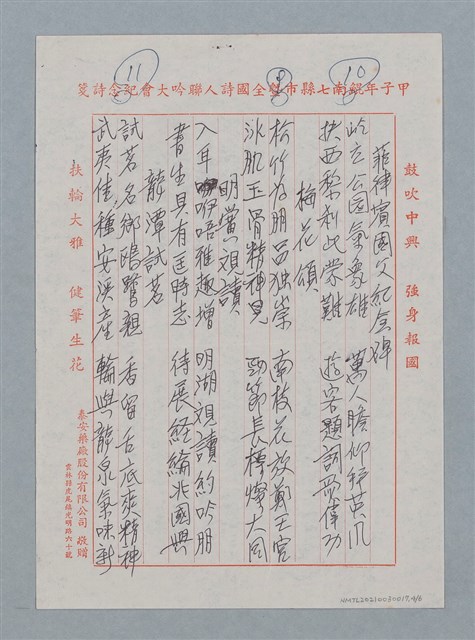 11 9 10
甲子年鯤南七縣市暨全國詩人聯吟大會紀念詩箋
鼓吹中興 強身報國
菲律賓國父紀念碑
屹立公園氣象雄 萬人瞻仰拜英風
扶西黎利氏榮難 遊客題詞蔚偉功
梅花頌
松竹為朋品獨崇 南枝花放鄭王宮
冰肌玉骨精神見 勁節長標耀大同
明 讀
入耳咿唔雅趣增 明湖 讀約吟朋
書生具有匡時志 待展經綸兆國興
龍潭試茗
試茗名鄉鷗鷺親 香留舌底爽精神
武夷佳種安溪產 輸與龍泉氣味新
扶輪大雅 健筆生花
泰安藥廠股份有限公司 敬贈
雲林縣虎尾鎮光明路六十號